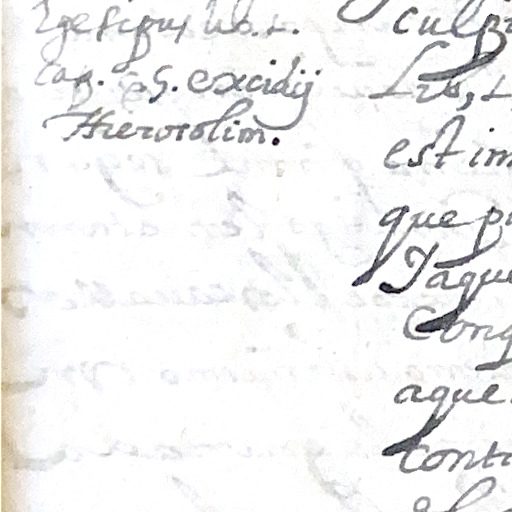 Egesipus lib. 2.
cap. 5. excidij
Hierosolim.
culp
est im
que pu
Jaque
Cong
aque
contr